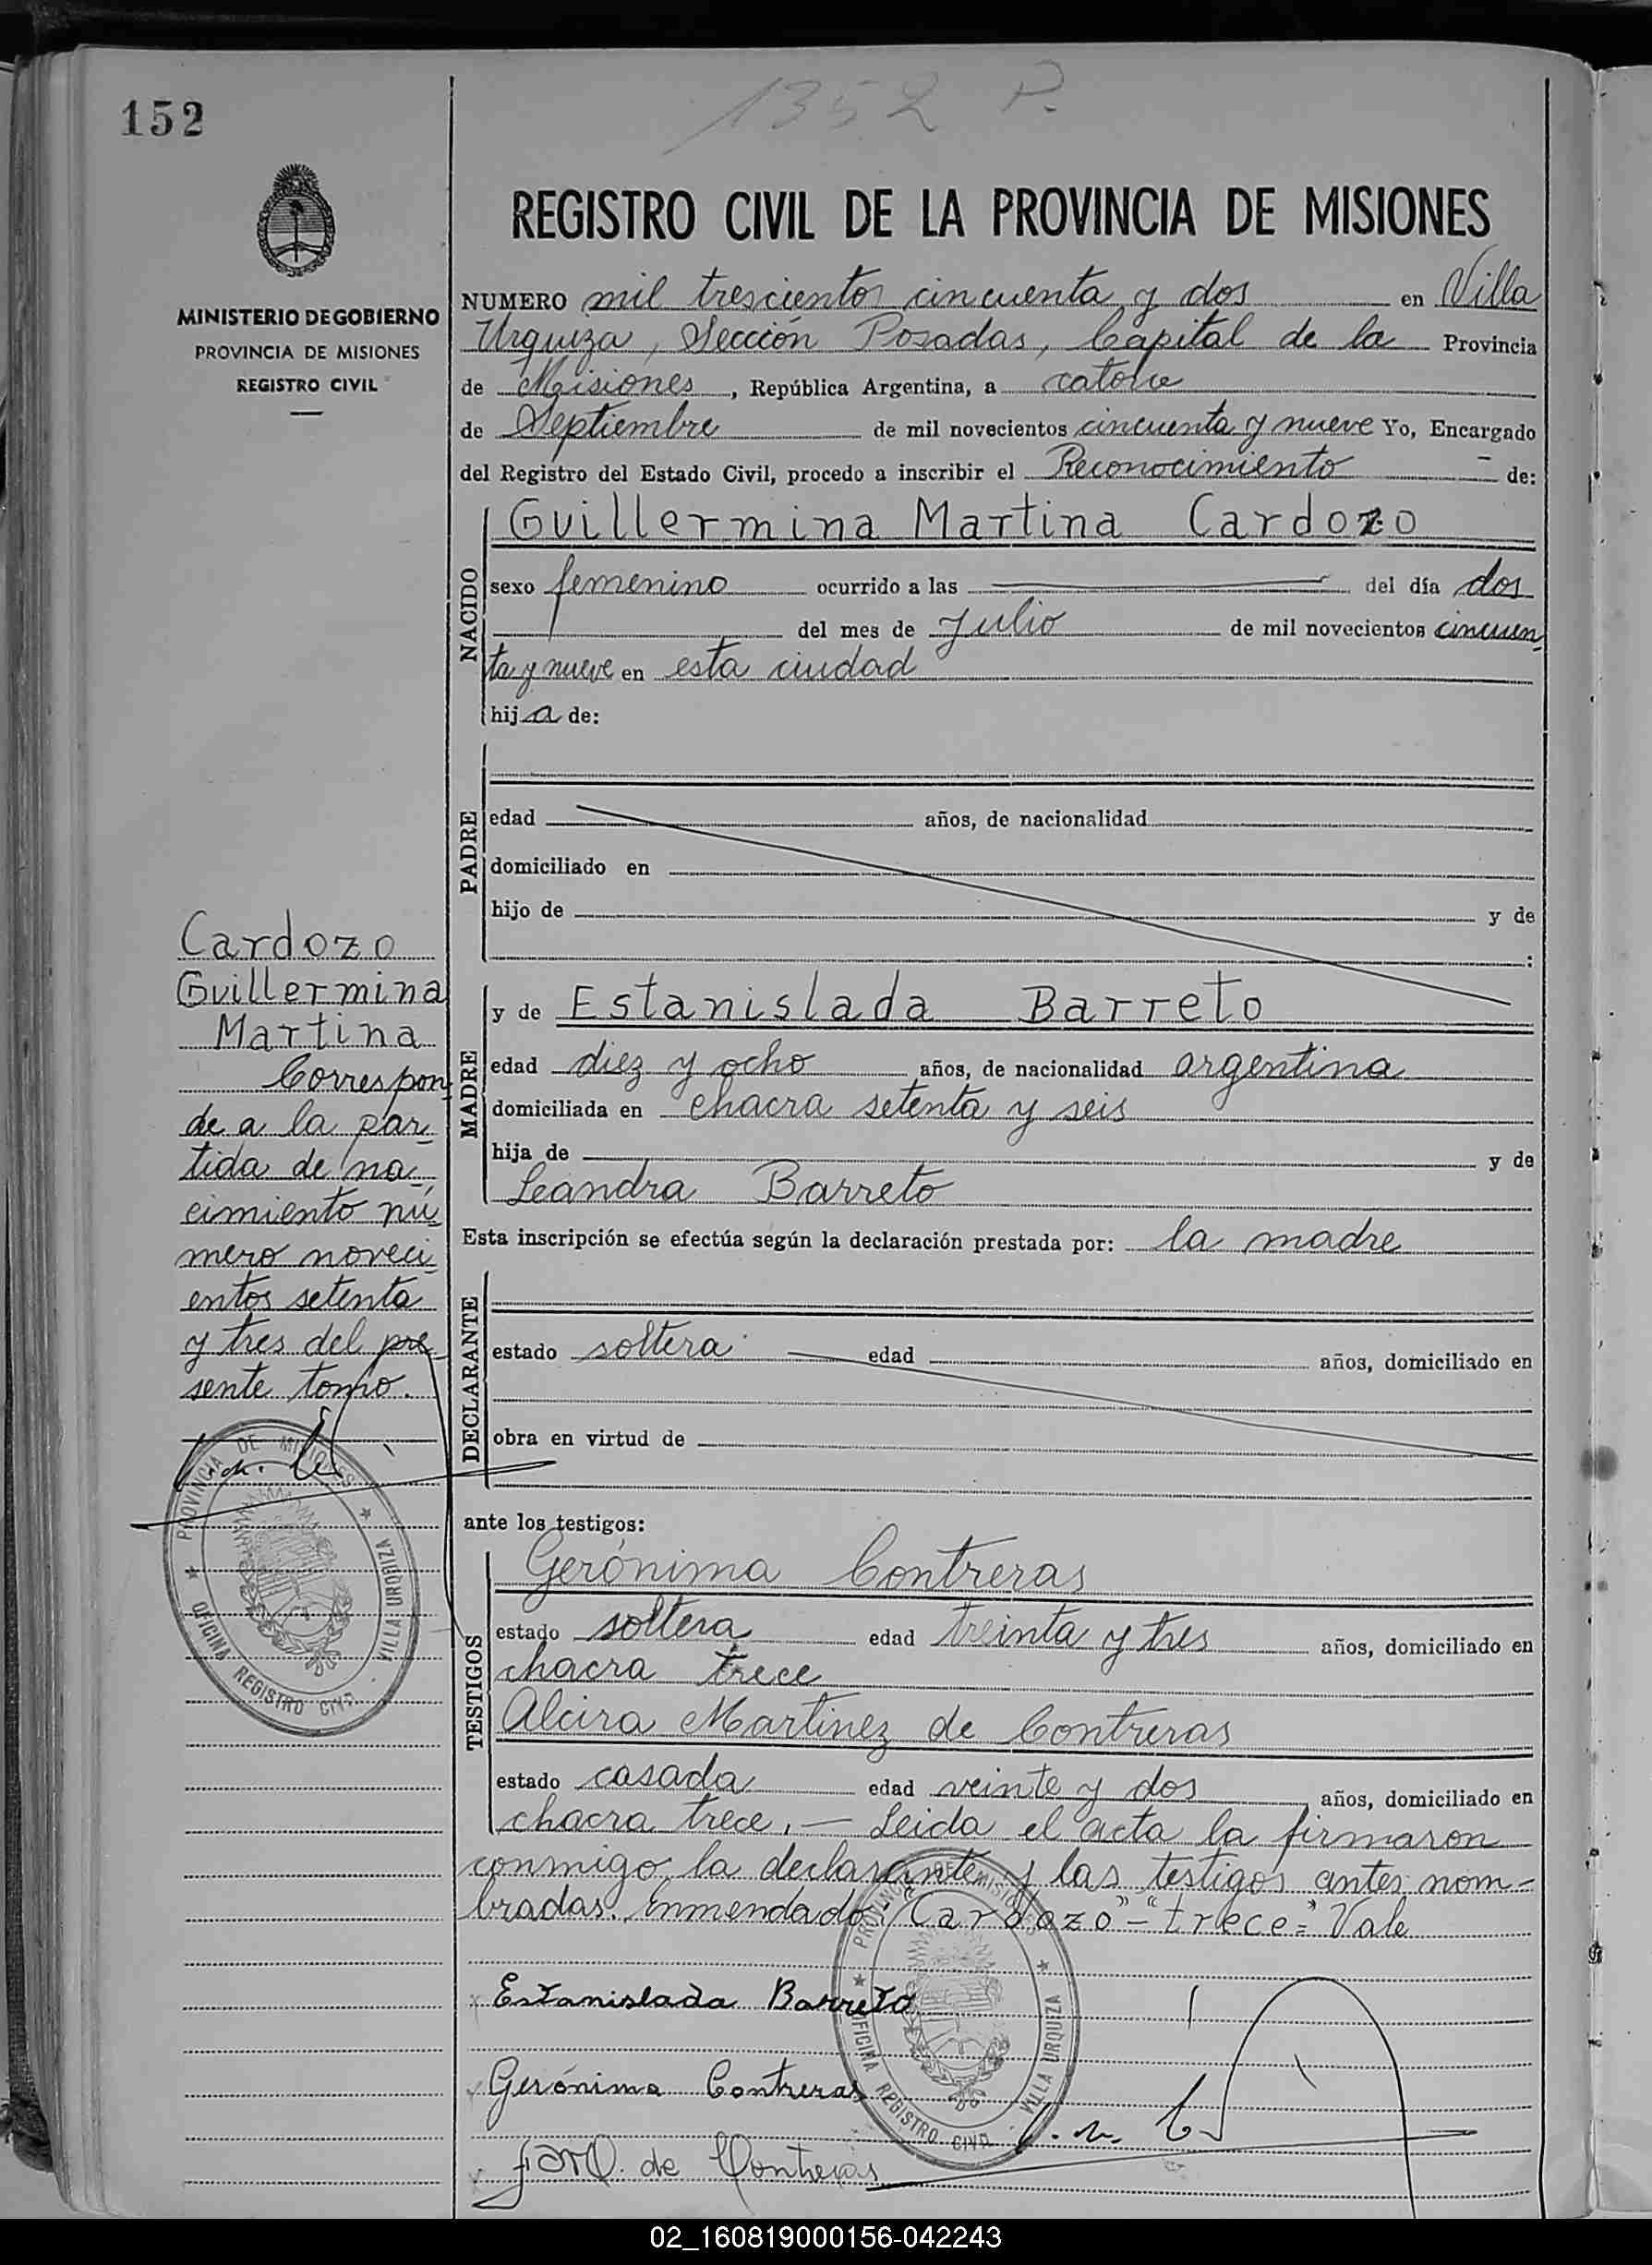 152
1352 P.
MINISTERIO DE GOBIERNO
PROVINCIA DE MISIONES
REGISTRO CIVIL
REGISTRO CIVIL DE LA PROVINCIA DE MISIONES
NUMERO mil trescientos cincuenta y dos en Villa
Urquiza, Sección Posadas, Capital de la Provincia
de Misiones, República Argentina, a catorce
de Septiembre de mil novecientos cincuenta y nueve Yo, Encargado
del Registro del Estado Civil, procedo a inscribir el Reconocimiento de:
NACIDO
Guillermina Martina Cardozo
sexo femenino ocurrido a las del día dos
del mes de Julio de mil novecientos cincuen
ta y nueve en esta ciudad
hija de:
PADRE
edad años, de nacionalidad
domiciliado en
hijo de y de
:
Cardozo
Guillermina
Martina
Correspon
de a la par
tida de na
cimiento nú
mero noveci
entos setenta
y tres del pre
sente tomo.
MADRE
y de Estanislada Barreto
edad diez y ocho años, de nacionalidad argentina
domiciliada en chacra setenta y seis
hija de y de
Leandra Barreto
Esta inscripción se efectúa según la declaración prestada por: la madre
DECLARANTE
estado soltera edad años, domiciliado en
obra en virtud de
PROVINCIA DE MISIONES
VILLA URQUIZA
OFICINA REGISTRO CIVIL
ante los testigos:
TESTIGOS
Gerónima Contreras
estado soltera edad treinta y tres años, domiciliado en
chacra trece
Alcira Martinez de Contreras
estado casada edad veinte y dos años, domiciliado en
chacra trece.— Leida el acta la firmaron
conmigo, la declarante y las testigos antes nom-
bradas. Enmendado: "Cardozo" - "trece=" Vale
Estanislada Barreto
Gerónima Contreras
de Contreras
PROVINCIA DE MISIONES
VILLA URQUIZA
OFICINA REGISTRO CIVIL
02_160819000156-042243